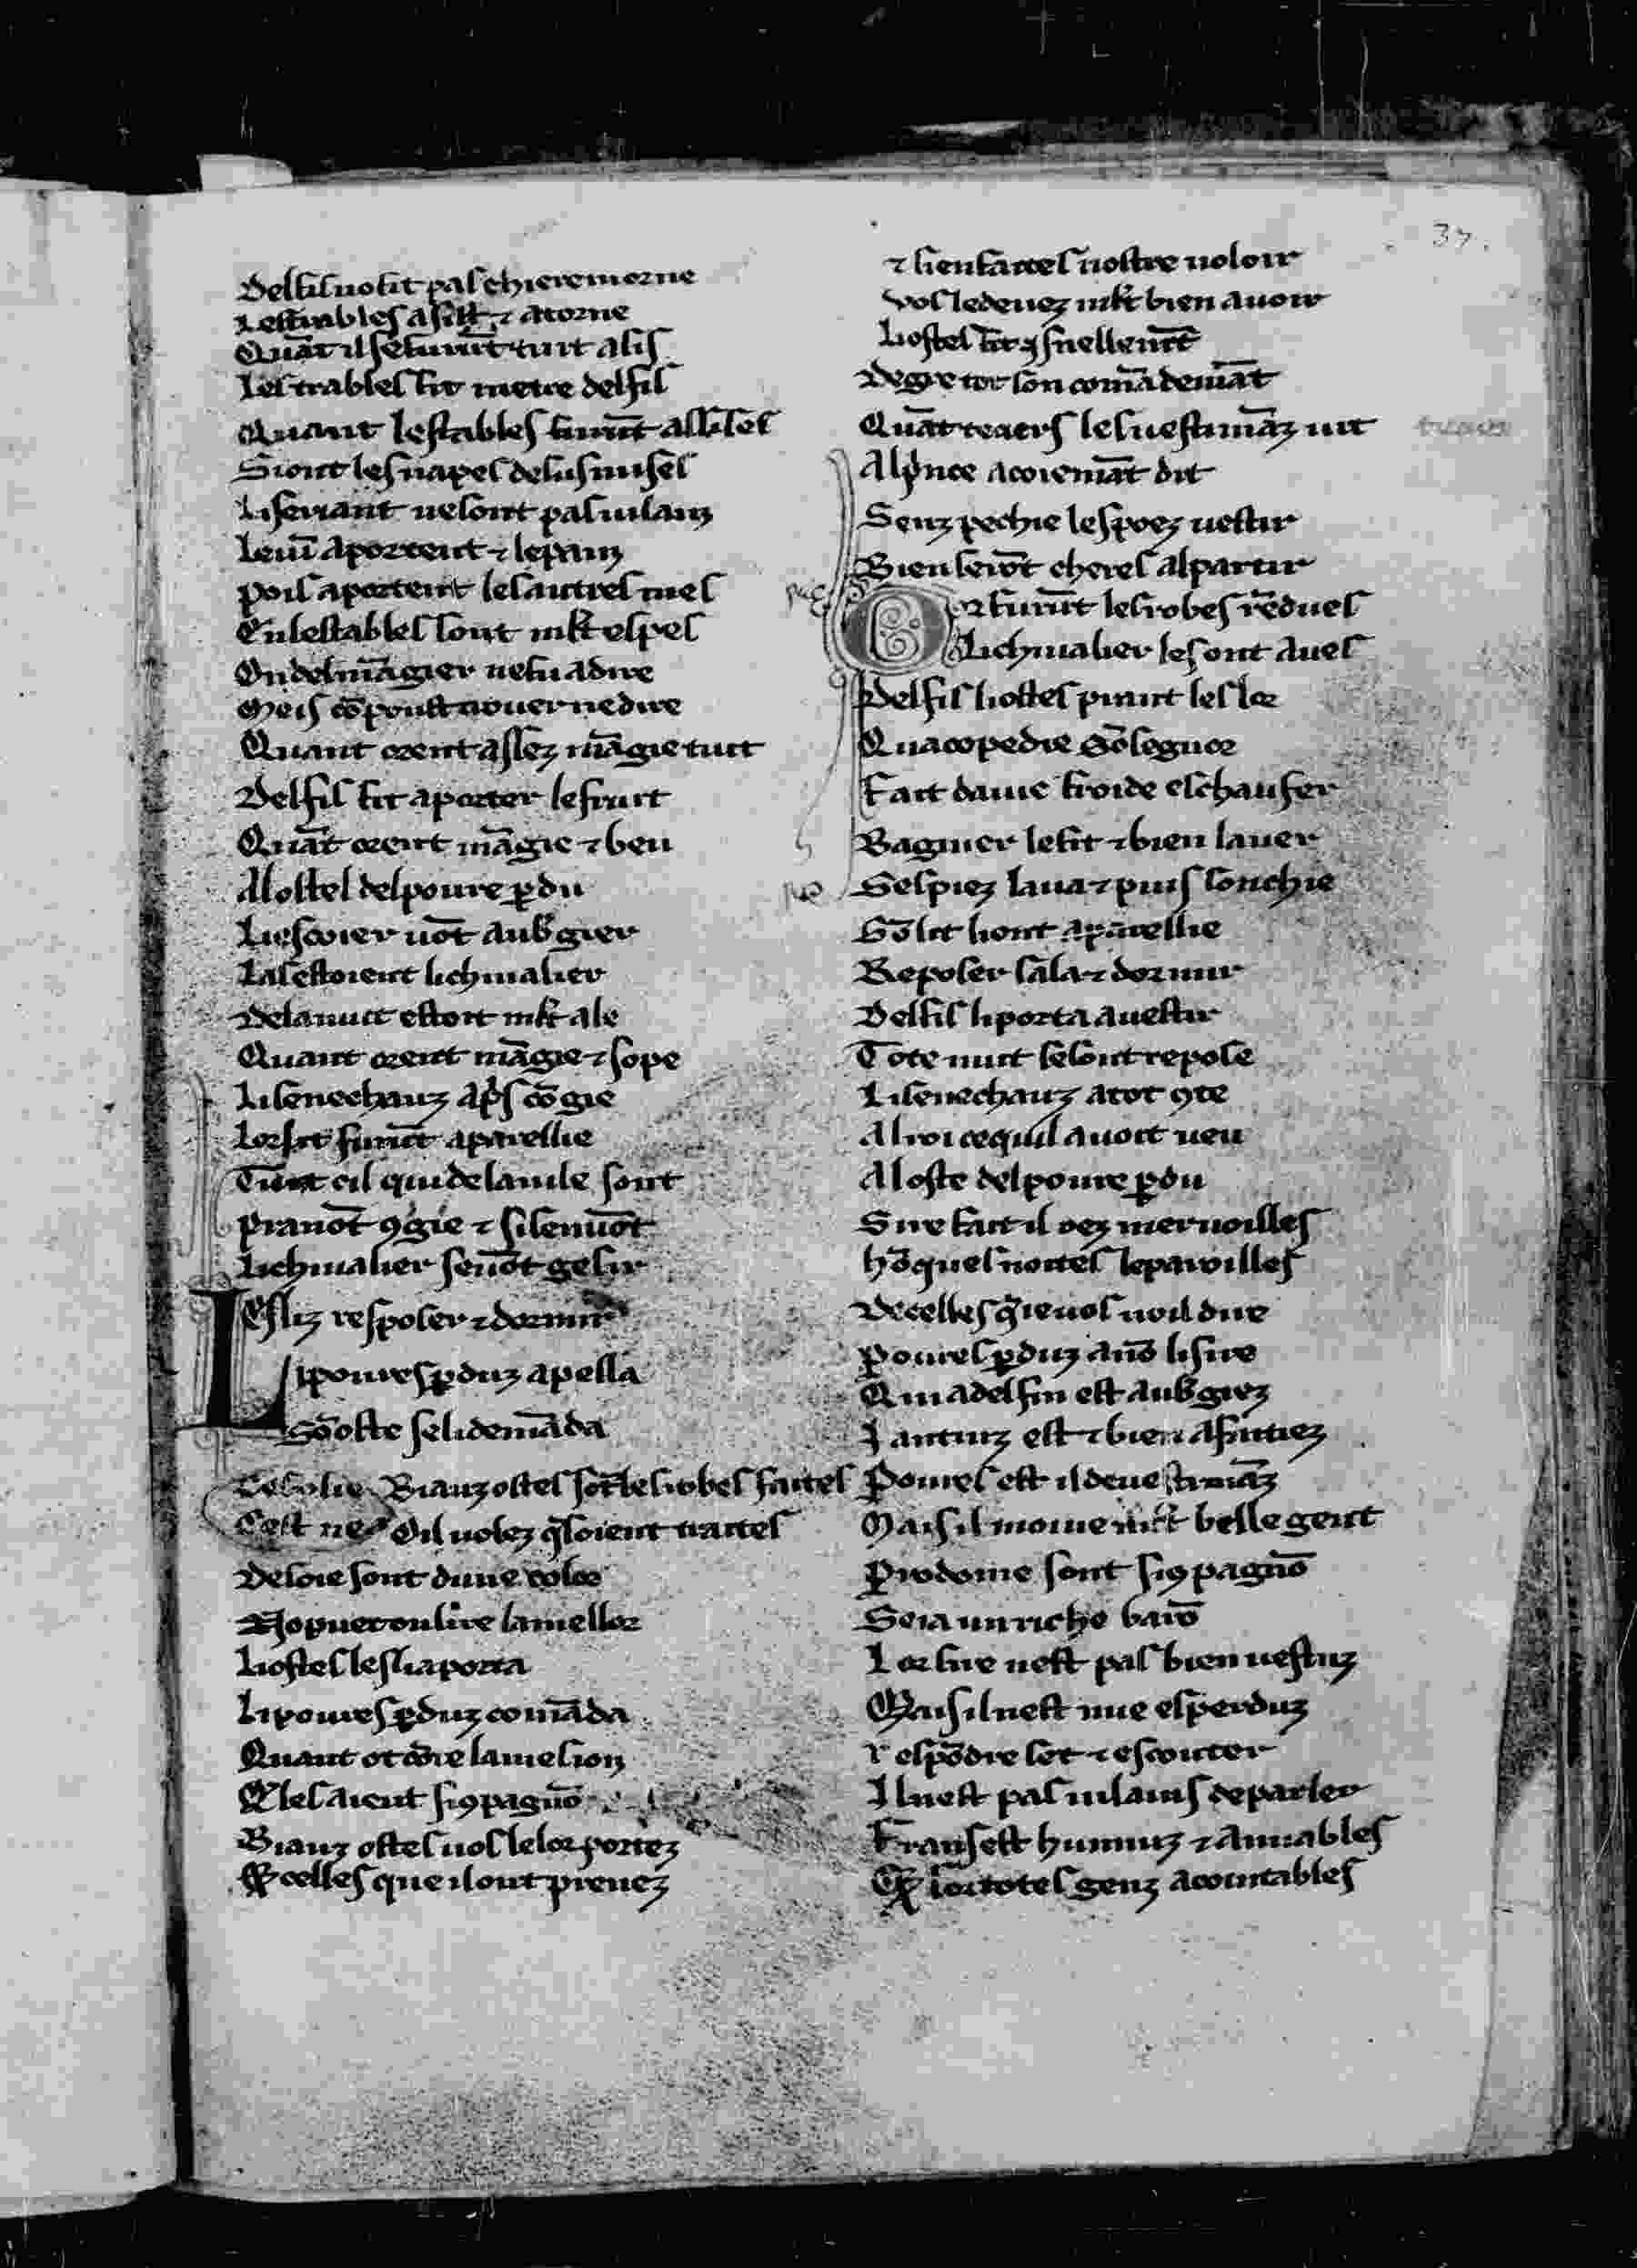 Delfil no fit pas chiere morne
Les tables asist ⁊ atorne
Quāt il se furnt tuit asis
Les tables fit metre delfis
Quant les tables furūt assises
Si ont les napes desus mises
Li seriant ne sont pas uilain
Le uin aportent ⁊ le pain
Pois aportent les autres mes
En les tables sont mlt espes
On del māgier ne fu a dire
Meis cō poust trouer ne dire
Quant orent assez māgie tuit
Delfil fit aporter le fruit
Quāt orent māgie ⁊ beu
A lostel del poure ꝑdu
Li escoier uōt aubgier
La sestoient li chiualier
De la nuit estoit mlt ale
Quant orent māgie ⁊ sope
Li senechauz aps cōgie
Lor lit furūt apareillie
Tuit cil qui de la uile sont
Pranōt ꝯgie ⁊ si sen uōt
Li chiualier sen uōt gesir
Es liz resposer ⁊ dormir
Li poures ꝑduz apella
Sō oste se li demāda
Biauz ostes sōt les robes faites
Oil uoiez q̄ soient traites
De soie sont dune color
No puet on lire la mellor
Li ostes les li aporta
Li poures ꝑduz comāda
Quant ot core la meison
Q̄ les aient si ꝯpagnō
Biauz ostes uos les lor portez
Et celles que il ont prenez
⁊ bien faites nostre uoloir
Vos le deuez mlt bien auoir
Li ostes fit ꝯ snellemt
De gre tot son comādemāt
Quāt te ters les uestimāz uit
Al pince acoiemāt dit
Senz pechie les poez uestir
Bien seiōt cheres al partir
Or furūt les robes rēdues
Li chiualier les ont aues
Delfis li ostes prant les lor
Qua copedie sō segnor
Fait daiue froide eschaufer
Bagnier le fit ⁊ bien lauer
Ses piez laua ⁊ puis couchie
Sō lit li ont aparellie
Reposer sala ⁊ dormir
Delfis li porta a uestir
Tote nuit se sont repose
Li senechauz a tot ꝯte
Al roi ce quil auoit ueu
A loste del poure ꝑdu
Sire fait il oez meruoilles
Hō ques noites leparoilles
De celles q̄ ie uos uoil dire
Poures ꝑduz a nō li sire
Qui a delfin est aubgiez
Iantiz est ⁊ bien afaitiez
Poures est il de uestimāz
Mais il moine mlt belle gent
Prodome sont si ꝯpagnō
Seia un riche barō
Lor sire nest pas bien uestuz
Mais il nest mie esperduz
Respōdre set ⁊ escouter
Il nest pas uilains de parler
Frans est humiuz ⁊ amiables
Et sor totes genz acointables